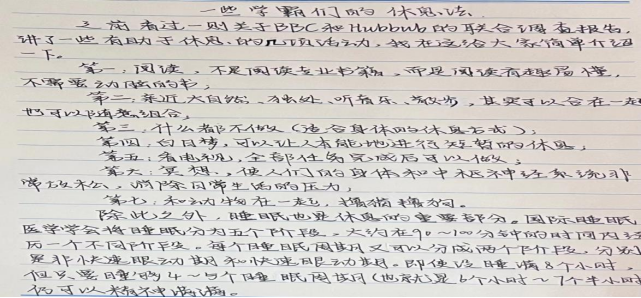 一些学霸们的休息法
之前看过一则关于BBC和Hubbub的联合调查报告,
讲了一些有助于休息的几项活动,我在这给大家简单介绍
一下。
第一,阅读,不是阅读专业书籍,而是阅读有趣易懂,
不需要动脑的书,
第二:亲近大自然、独处、听音乐、散步,其实可以合在一起
也可以随意组合,
第三,什么都不做(适合身体的休息方式);
第四:白日梦,可以让人有能地进行短暂的休息,
第五:看电视,全部任务完成后可以做;
第六:冥想,使人们的身体和中枢神经系统非
常放松,消除日常生活的压力,
第七:和动物在一起,撸猫撸狗。
除此之外,睡眠也是休息的重要部分。国际睡眠
医学学会将睡眠分为五个阶段。大约在90~100分钟的时间内经
历一个不同阶段。每个睡眠周期又可以分成两个阶段,分别
是非快速眼动期和快速眼动期。即使没睡满8个小时,
但只要睡够4~5个睡眠周期(也就是6个小时~7个半小时
仍可以精神满满。